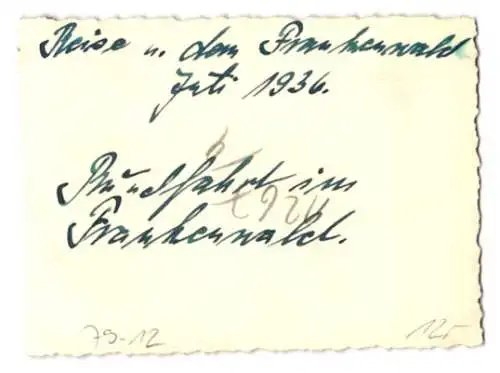 Reise n. dem Frankenwald
Juli 1936.
Rundfahrt im
Frankenwald.
79-12
12,-